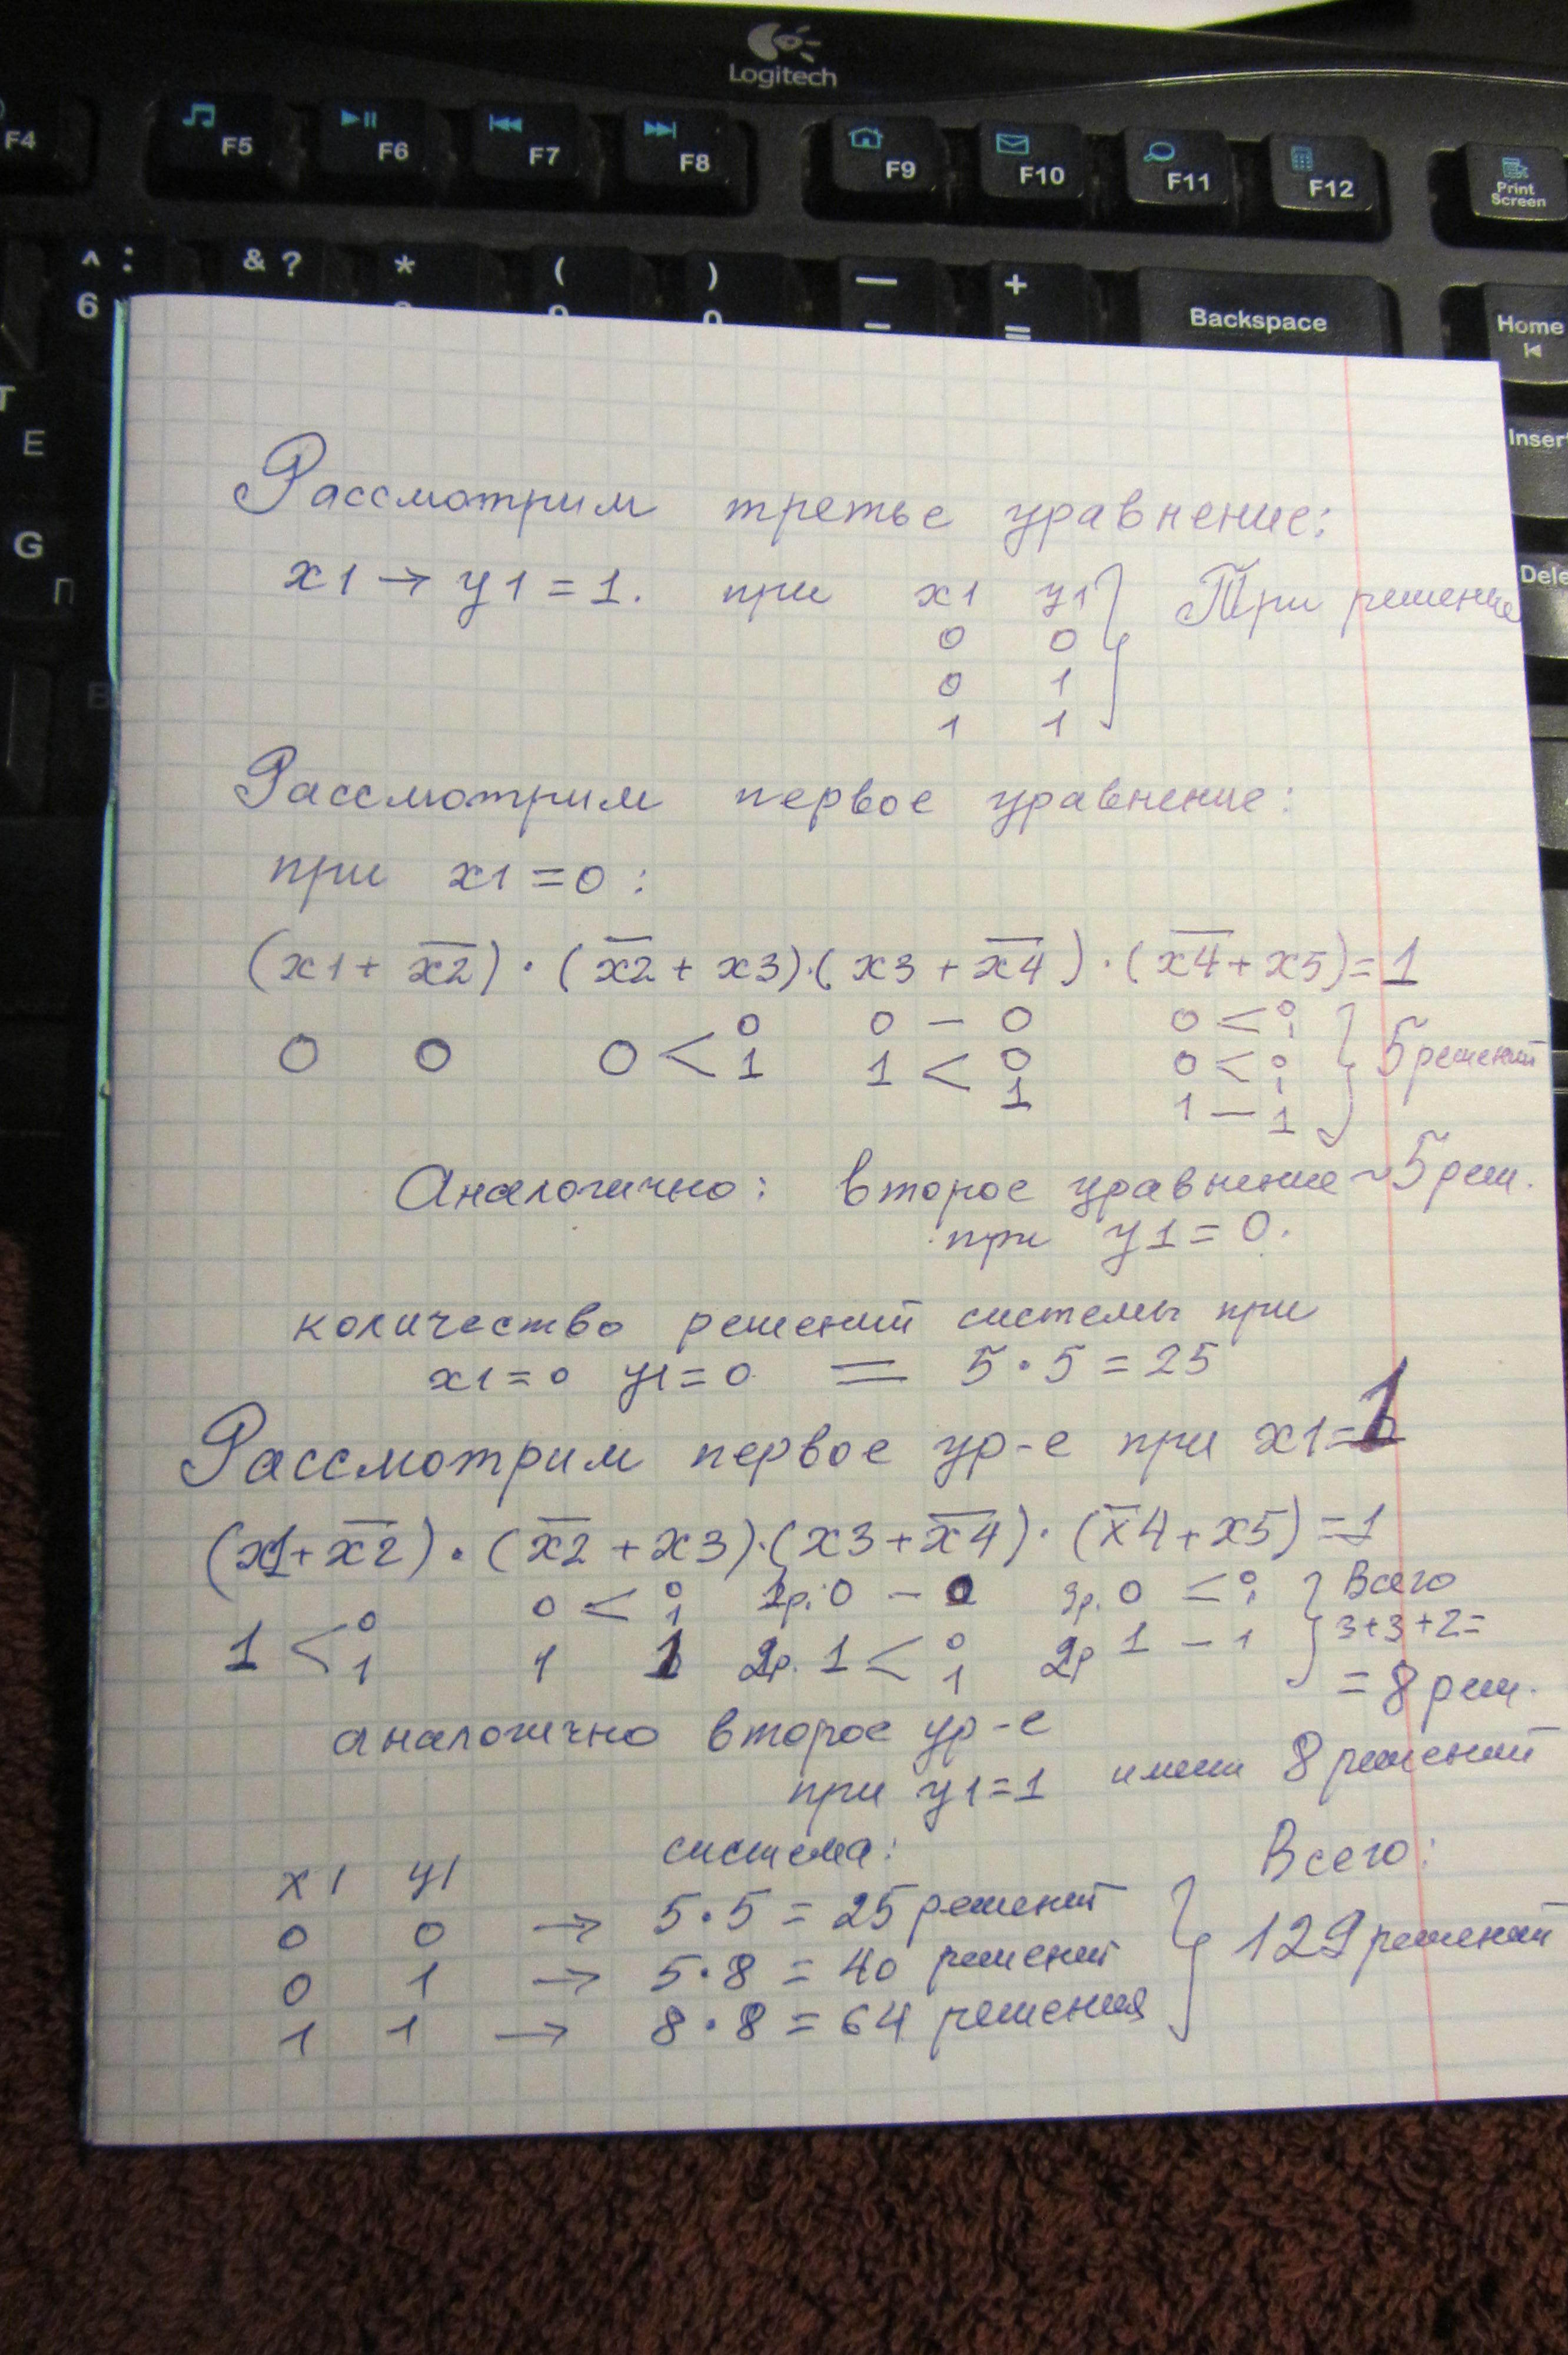 Logitech
F4 F5 F6 F7 F8 F9 F10 F11 F12 Print Screen
^ : & ? * ( ) — +
6 – = Backspace Home
Insert
E
G
П
Рассмотрим третье уравнение:
x1 → y1 = 1. при x1 y1 } Три решение
0 0
0 1
1 1
Рассмотрим первое уравнение:
при x1 = 0 :
(x1 + x̅2̅) · (x̅2̅ + x3)·(x3 + x̅4̅) · (x̅4̅ + x5) = 1
0 – 0 0 < 0 1
0 0 0 < 0 1 1 < 0 1 0 < 0 1 } 5 решений
1 – 1
Аналогично: второе уравнение ~ 5 реш.
при y1 = 0.
количество решений системы при
x1 = 0 y1 = 0 = 5 · 5 = 25
Рассмотрим первое ур-е при x1 = 1
(x1 + x̅2̅) · (x̅2̅ + x3)·(x3 + x̅4̅) · (x̅4 + x5) = 1
0 < 0 1 2р. 0 – 0 3р. 0 < 0 1 } Всего
3 + 3 + 2 =
1 < 0 1 1 1 2р. 1 < 0 1 2р 1 – 1
= 8 реш.
аналогично второе ур-е
при y1 = 1 имеет 8 решений
x1 y1 система: Всего:
0 0 → 5 · 5 = 25 решений
0 1 → 5 · 8 = 40 решений } 129 решений
1 1 → 8 · 8 = 64 решения